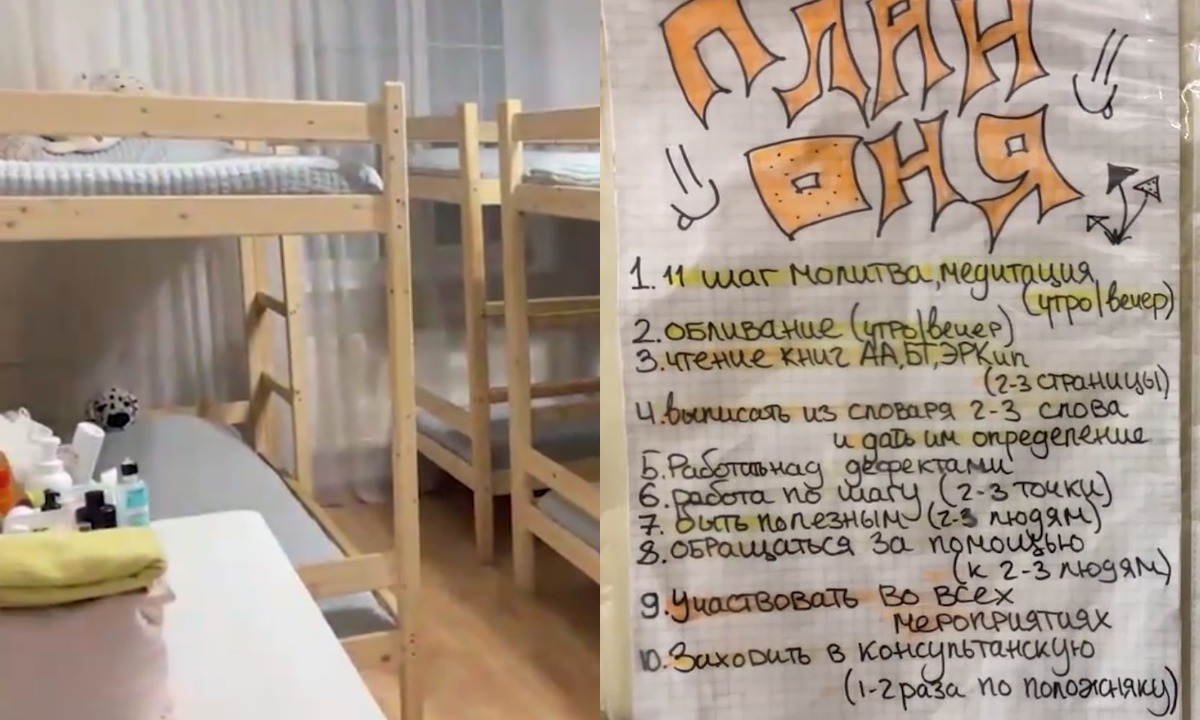 ПЛАН
ДНЯ
1. 11 шаг молитва, медитация
(утро/вечер)
2. обливание (утро/вечер)
3. чтение книг АА, БТ, ЭРКип
(2-3 страницы)
4. выписать из словаря 2-3 слова
и дать им определение
5. Работать над дефектами
6. работа по шагу (2-3 точки)
7. быть полезным (2-3 людям)
8. обращаться за помощью
(к 2-3 людям)
9. Участвовать во всех
мероприятиях
10. Заходить в консультанскую
(1-2 раза по положняку)